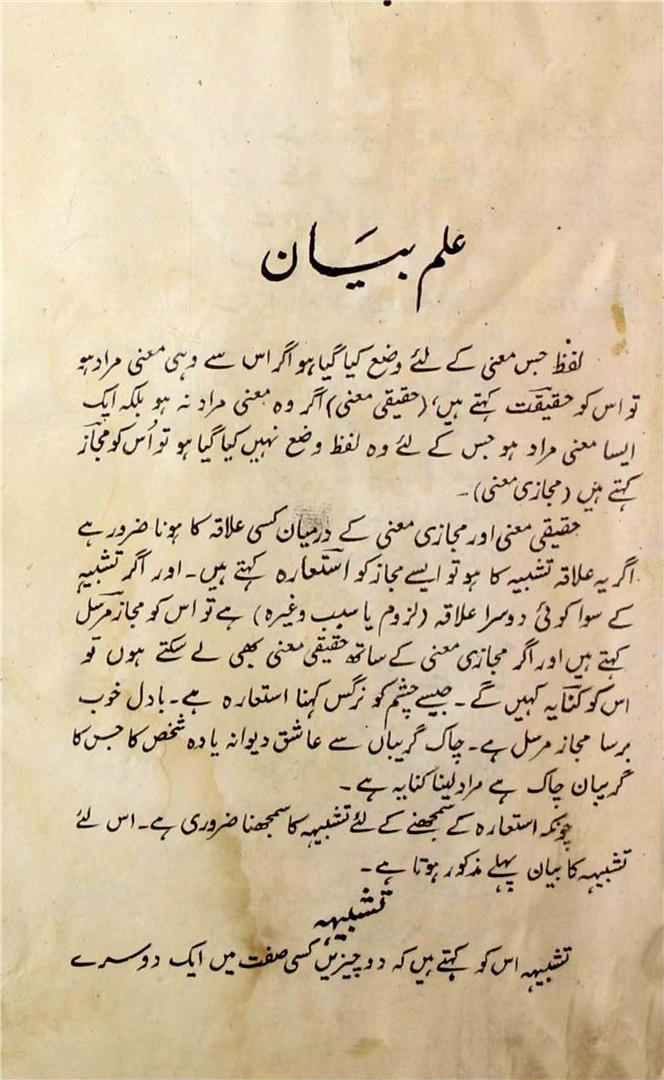 علم بیَان
لفظ جس معنی کے لئے وضع کیا گیا ہو اگر اس سے وہی معنی مراد ہو
تو اس کو حقیقت کہتے ہیں، (حقیقی معنی) اگر وہ معنی مراد نہ ہو بلکہ ایک
ایسا معنی مراد ہو جس کے لئے وہ لفظ وضع نہیں کیا گیا ہو تو اُس کو مجاز
کہتے ہیں (مجازی معنی)۔
حقیقی معنی اور مجازی معنی کے درمیان کسی علاقہ کا ہونا ضرور ہے
اگر یہ علاقہ تشبیہ کا ہو تو ایسے مجاز کو استعارہ کہتے ہیں۔ اور اگر تشبیہ
کے سوا کوئی دوسرا علاقہ (لزوم یا سبب وغیرہ) ہے تو اس کو مجاز مرسل
کہتے ہیں اور اگر مجازی معنی کے ساتھ حقیقی معنی بھی لے سکتے ہوں تو
اس کو کنایہ کہیں گے۔ جیسے چشم کو نرگس کہنا استعارہ ہے۔ بادل خوب
برسا مجاز مرسل ہے۔ چاک گریباں سے عاشق دیوانہ یا وہ شخص کا جس کا
گریبان چاک ہے مراد لینا کنایہ ہے۔
چونکہ استعارہ کے سمجھنے کے لئے تشبیہہ کا سمجھنا ضروری ہے۔ اس لئے
تشبیہہ کا بیان پہلے مذکور ہوتا ہے۔
تشبیہہ
تشبیہہ اس کو کہتے ہیں کہ دو چیزیں کسی صفت میں ایک دوسرے